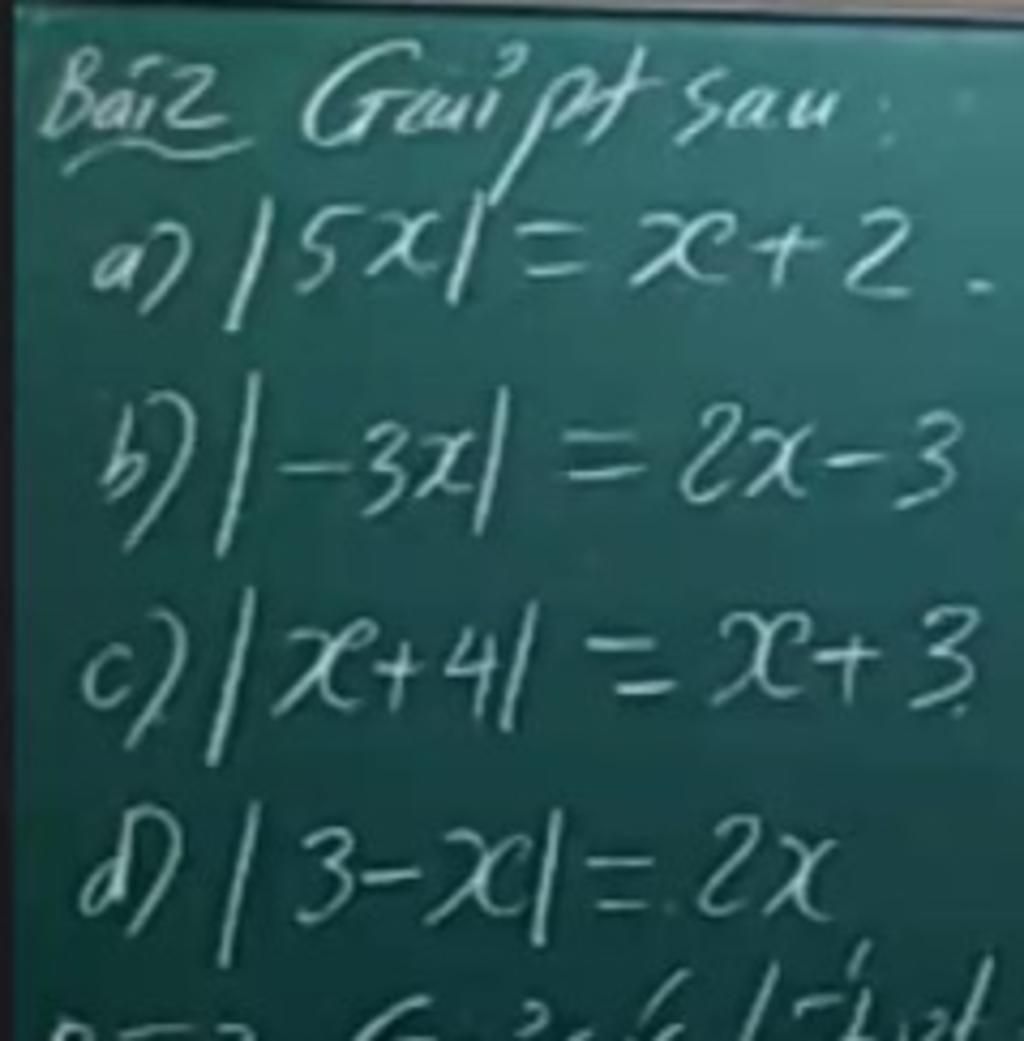 Bài 2 Giải pt sau:
a) |5x| = x + 2.
b) |-3x| = 2x - 3
c) |x + 4| = x + 3.
d) |3 - x| = 2x